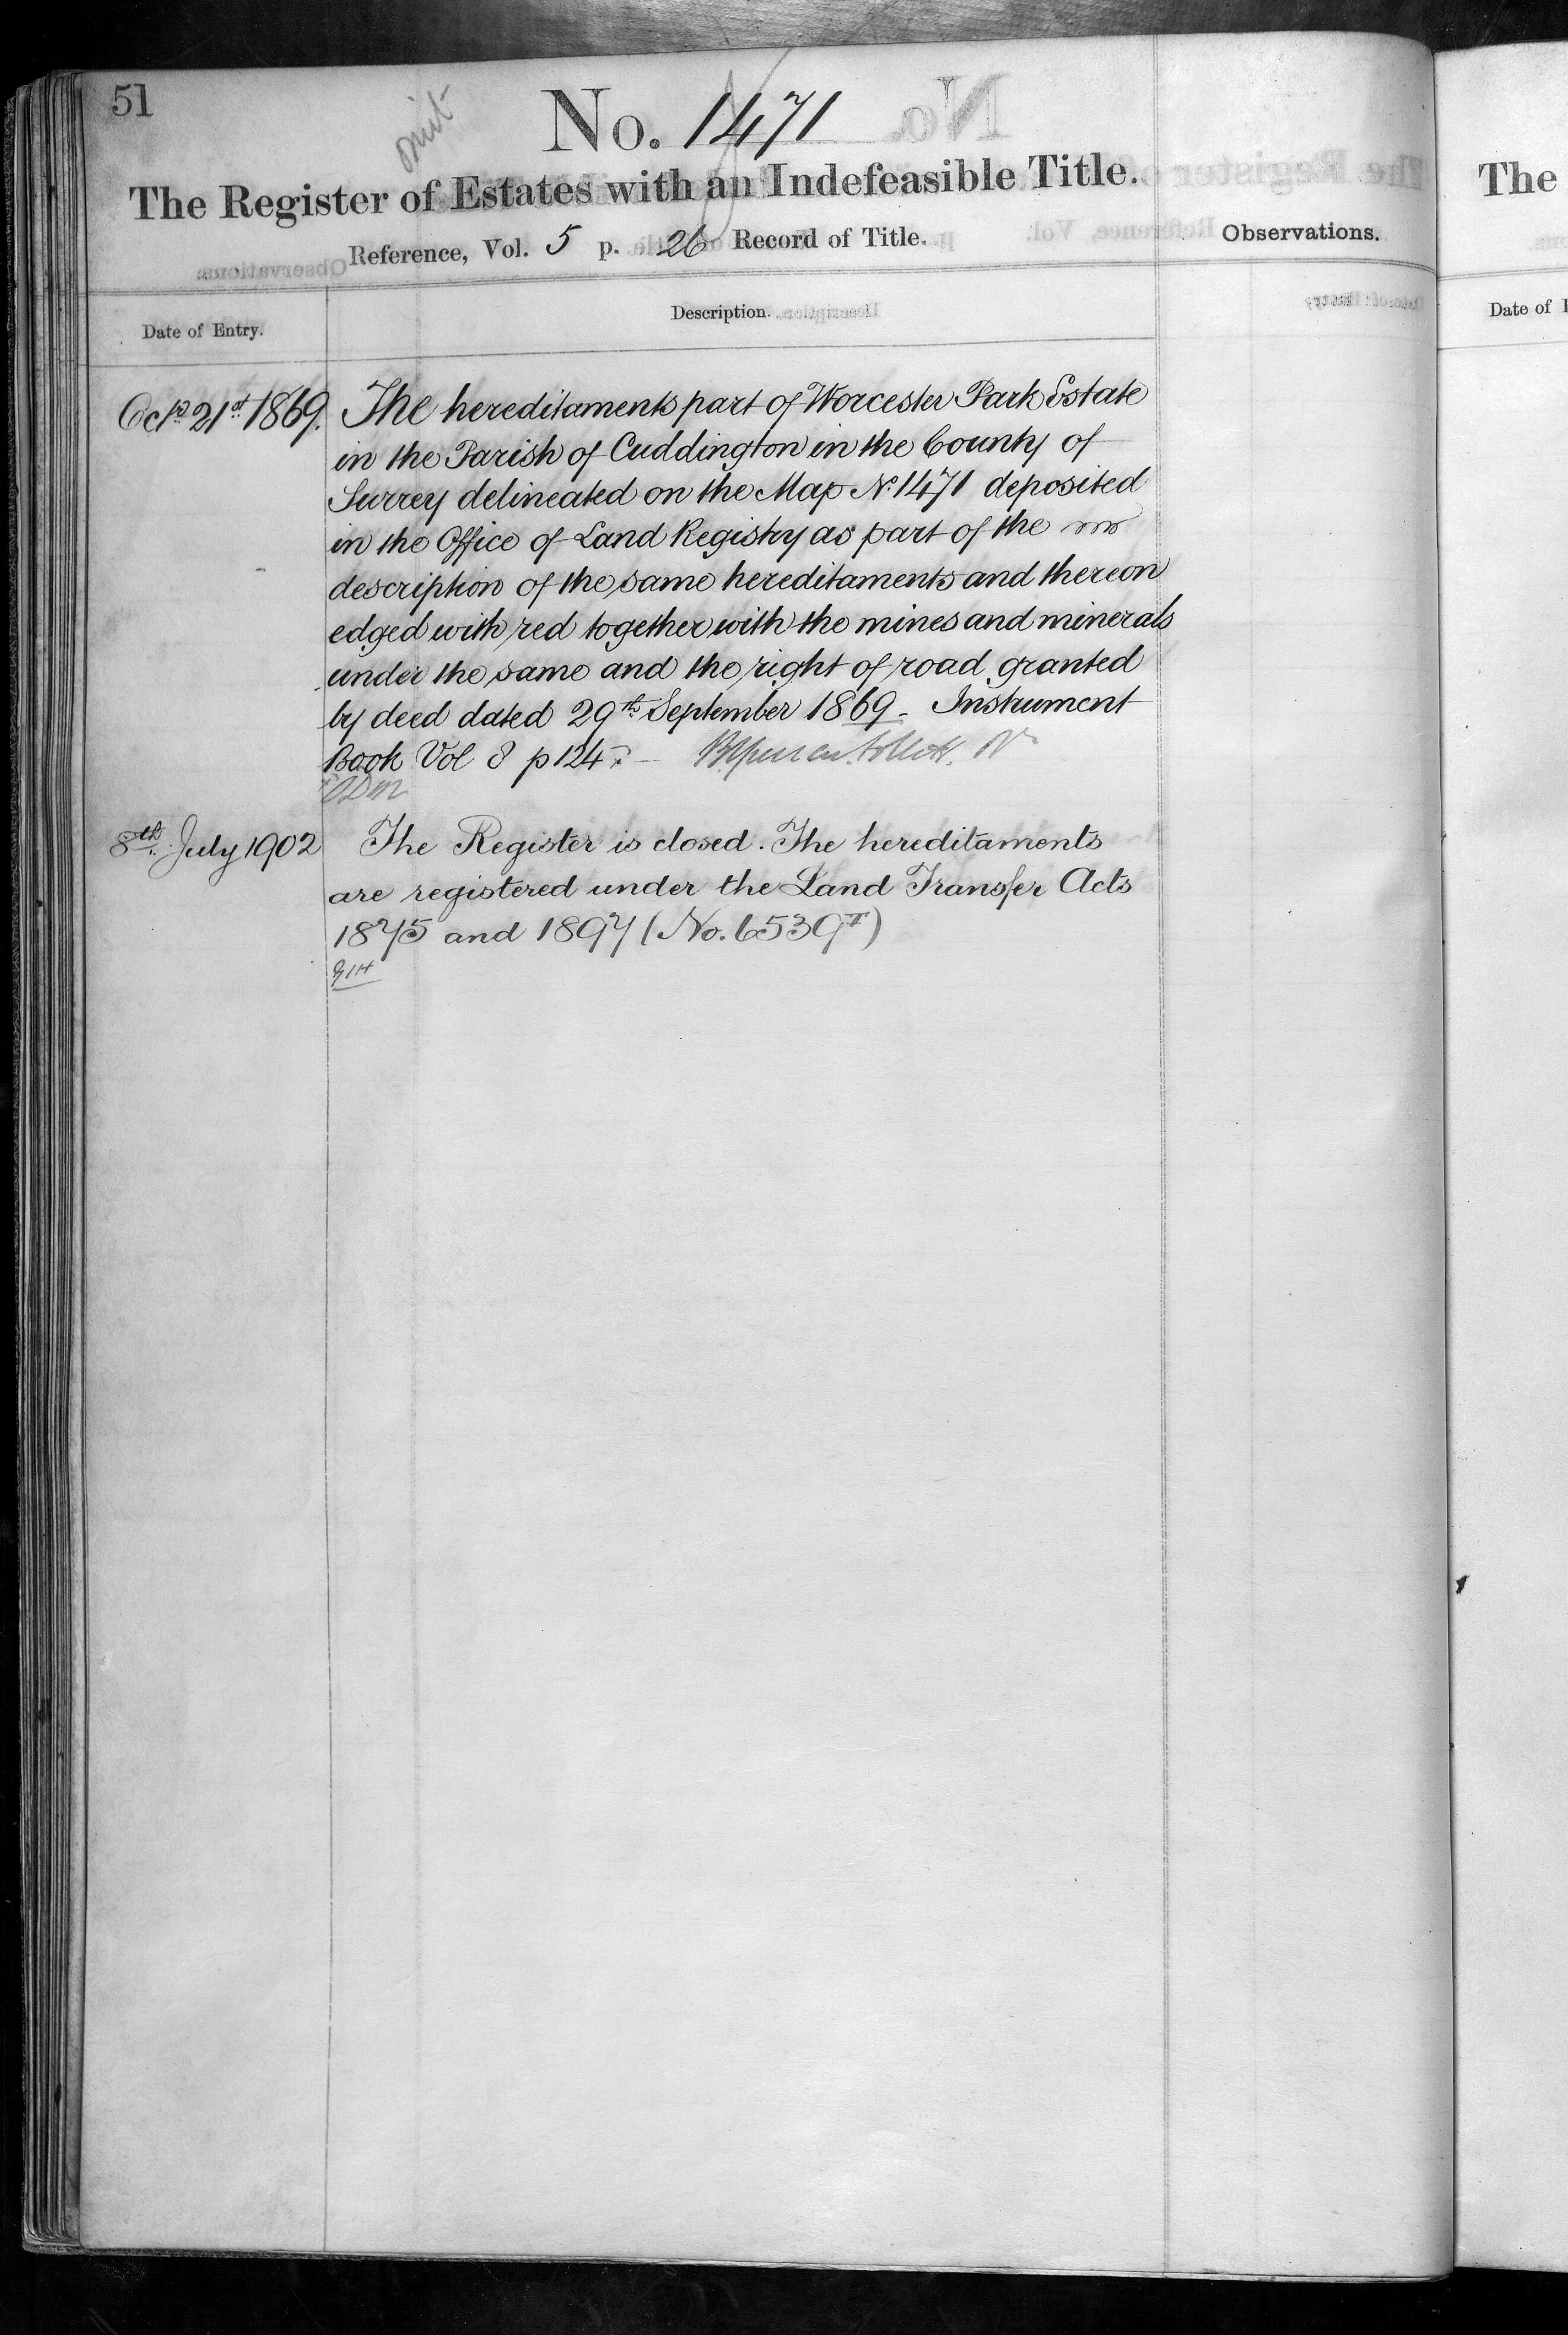 51
omit
No. 1471
The Register of Estates with an Indefeasible Title.
Reference, Vol. 5 p. 26 Record of Title.
Observations.
Date of Entry.
Description.
Octr 21st 1869.
The hereditaments part of Worcester Park Estate
in the Parish of Cuddington in the County of
Surrey delineated on the Map No 1471 deposited
in the Office of Land Registry as part of the
description of the same hereditaments and thereon
edged with red together with the mines and minerals
under the same and the right of road granted
by deed dated 29th September 1869 - Instrument
Book Vol 8 p 124 -
8th July 1902
The Register is closed. The hereditaments
are registered under the Land Transfer Acts
1875 and 1897 (No. 6539
The
Date of